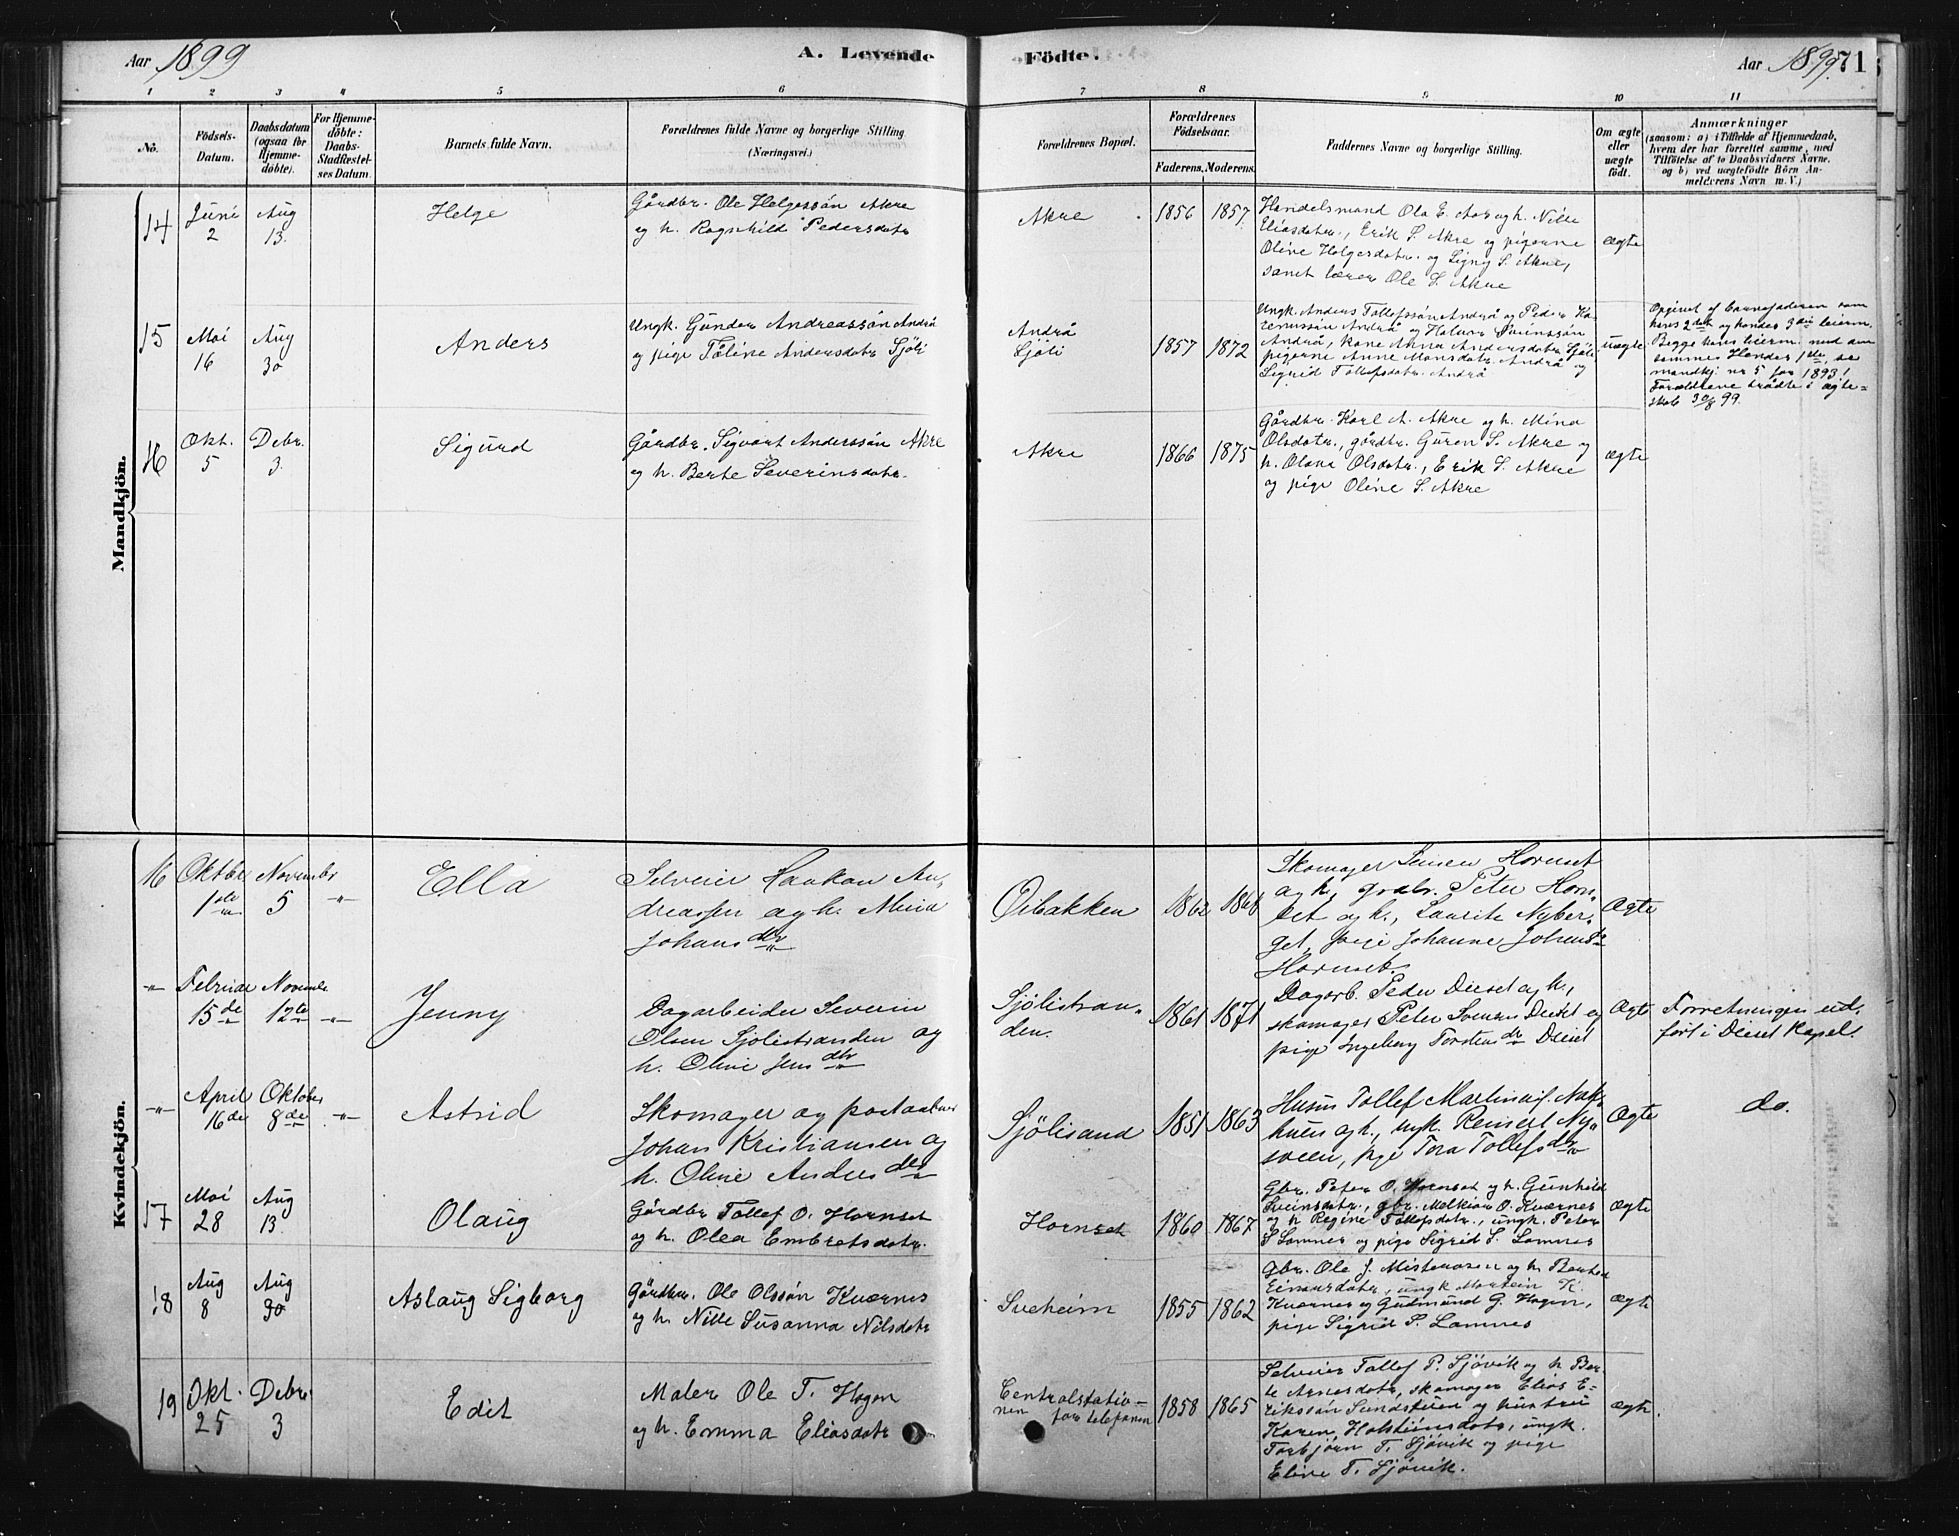 Aar 1899
A. Levende
Födte.
Aar 1899.
71
1 2 3 4 5 6 7 8 9 10 11
No.
Födsels-
Datum.
Daabsdatum
(ogsaa for
Hjemme-
döbte).
For Hjemme-
döbte:
Daabs-
Stadfæstel-
ses Datum.
Barnets fulde Navn.
Forældrenes fulde Navne og borgerlige Stilling
(Næringsvei.)
Forældrenes Bopæl.
Forældrenes
Födselsaar.
Faderens. Moderens.
Faddernes Navne og borgerlige Stilling.
Om ægte
eller
uægte
født.
Anmærkninger
(saasom: a) i Tilfælde af Hjemmedaab,
hvem der har forrettet samme, med
Tilföielse af to Daabsvidners Navne,
og b) ved uægtefödte Börn An-
melderens Navn m. V.)
Mandkjön.
14
Juni
2
Aug
13.
Helge
Gårdbr. Ole Helgessön Akre
og h. Ragnhild Pedersdatr
Akre
1856 1857
Handelsmand Ola E. Aas og h. Nille
Eliasdatr., Erik S. Akre og pigerne
Oline Helgesdatr. og Signy S. Akre,
samt lærer Ole S. Akre
ægte
15
Mai
16
Aug
30
Anders
Ungk. Gunder Andreassön Andrå
og pige Töline Andersdatr Sjöli
Andrå
Sjöli
1857 1872
Ungk. Anders Tollefssön Andrå og Peder Ka-
renussön Andrå og Halvor Sveinssön
Andrå, kone Anna Andersdatr Sjöli
pigerne Anne Monsdatr. Andrå og
Sigrid Tollefsdatr. Andrå
uægte
Opgivet af barnefaderen som
hans 2det og hendes 3die leierm.
Begge hans leierm. med den
samme. Hendes 1ste, se
mandkj. nr 5 for 1893!
Forældrene trådte i ægte-
skab 30/8 99.
16
Okt.
5
Debr.
3.
Sigurd
Gårdbr. Sigvart Anderssön Akre
og h. Berte Severinsdatr.
Akre
1866 1875
Gårdbr. Karl A. Akre og h. Mina
Olsdatr., gårdbr. Guren S. Akre og
h. Olava Olsdatr., Erik S. Akre
og pige Oline S. Akre
ægte
Kvindekjön.
16
Oktbr
1ste
November
5
Ella
Selveier Haakan An-
dreassen og h. Maria
Johansdtr
Öibakken
1862
Skomager Hornset
og h., grdbr. Peter Horn-
set og h., Laurits Nyber-
get, pige Johanne Johansdtr
Hornset.
Ægte
Februar
15de
Novembr
12te
Jenny
Dagarbeider Severin
Olsen Sjölistranden og
h. Oline Jensdtr
Sjölistran-
den.
1861 1871
Dagarb. Peder Dieset og h.,
skomager Peter Svensen Dieset og
pige Ingeborg Torstensdtr Dieset
Ægte
Forretningen ud-
ført i Dieset Kapel.
April
16de
Oktober
8de
Astrid
Skomager og postaabner
Johan Kristiansen og
h. Oline Andersdtr
Sjölisand
1851 1863
Husm Tollef Martinus.
og h., ungk. Reinert Ny-
sveen, pige Tora Tollefsdtr
Ægte
do.
17
Mai
28
Aug
13.
Olaug
Gårdbr Tollef O. Hornset
og h. Olea Embretsdatr.
Hornset
1860 1867
Gbr. Peter O. Hornset og h. Gunhild
Sveinsdatr., gbr. Melkior O. Kværnes
og h Regine Tollefsdatr., ungk. Peter
S Lomnes og pige Sigrid S. Lomnes
ægte
18
Aug
8
Aug
30
Aslaug Sigborg
Gårdbr. Ole Olssön Kværnes
og h. Nille Susanna Nilsdatr
Sveheim
1855 1862
Gbr. Ole J. Misterosen og h Berthe
Einarsdatr., ungk Morten K.
Kværnes og Gudmund G. Hagen,
pige Sigrid S. Lomnes
ægte
19
Okt.
25
Debr
3
Edit
Maler Ole T. Hagen
og h. Emma Eliasdatr
Centralstatio-
nen for telefonen
1858 1865
Selveier Tollef P. Sjövik og h Ber-
te Arnesdatr, skomager Elias E-
rikssön Sundstuen og hustru
Karen Halsteinsdatr, ungk.
Torbjörn T. Sjövik og pige
Eline T. Sjövik.
ægte